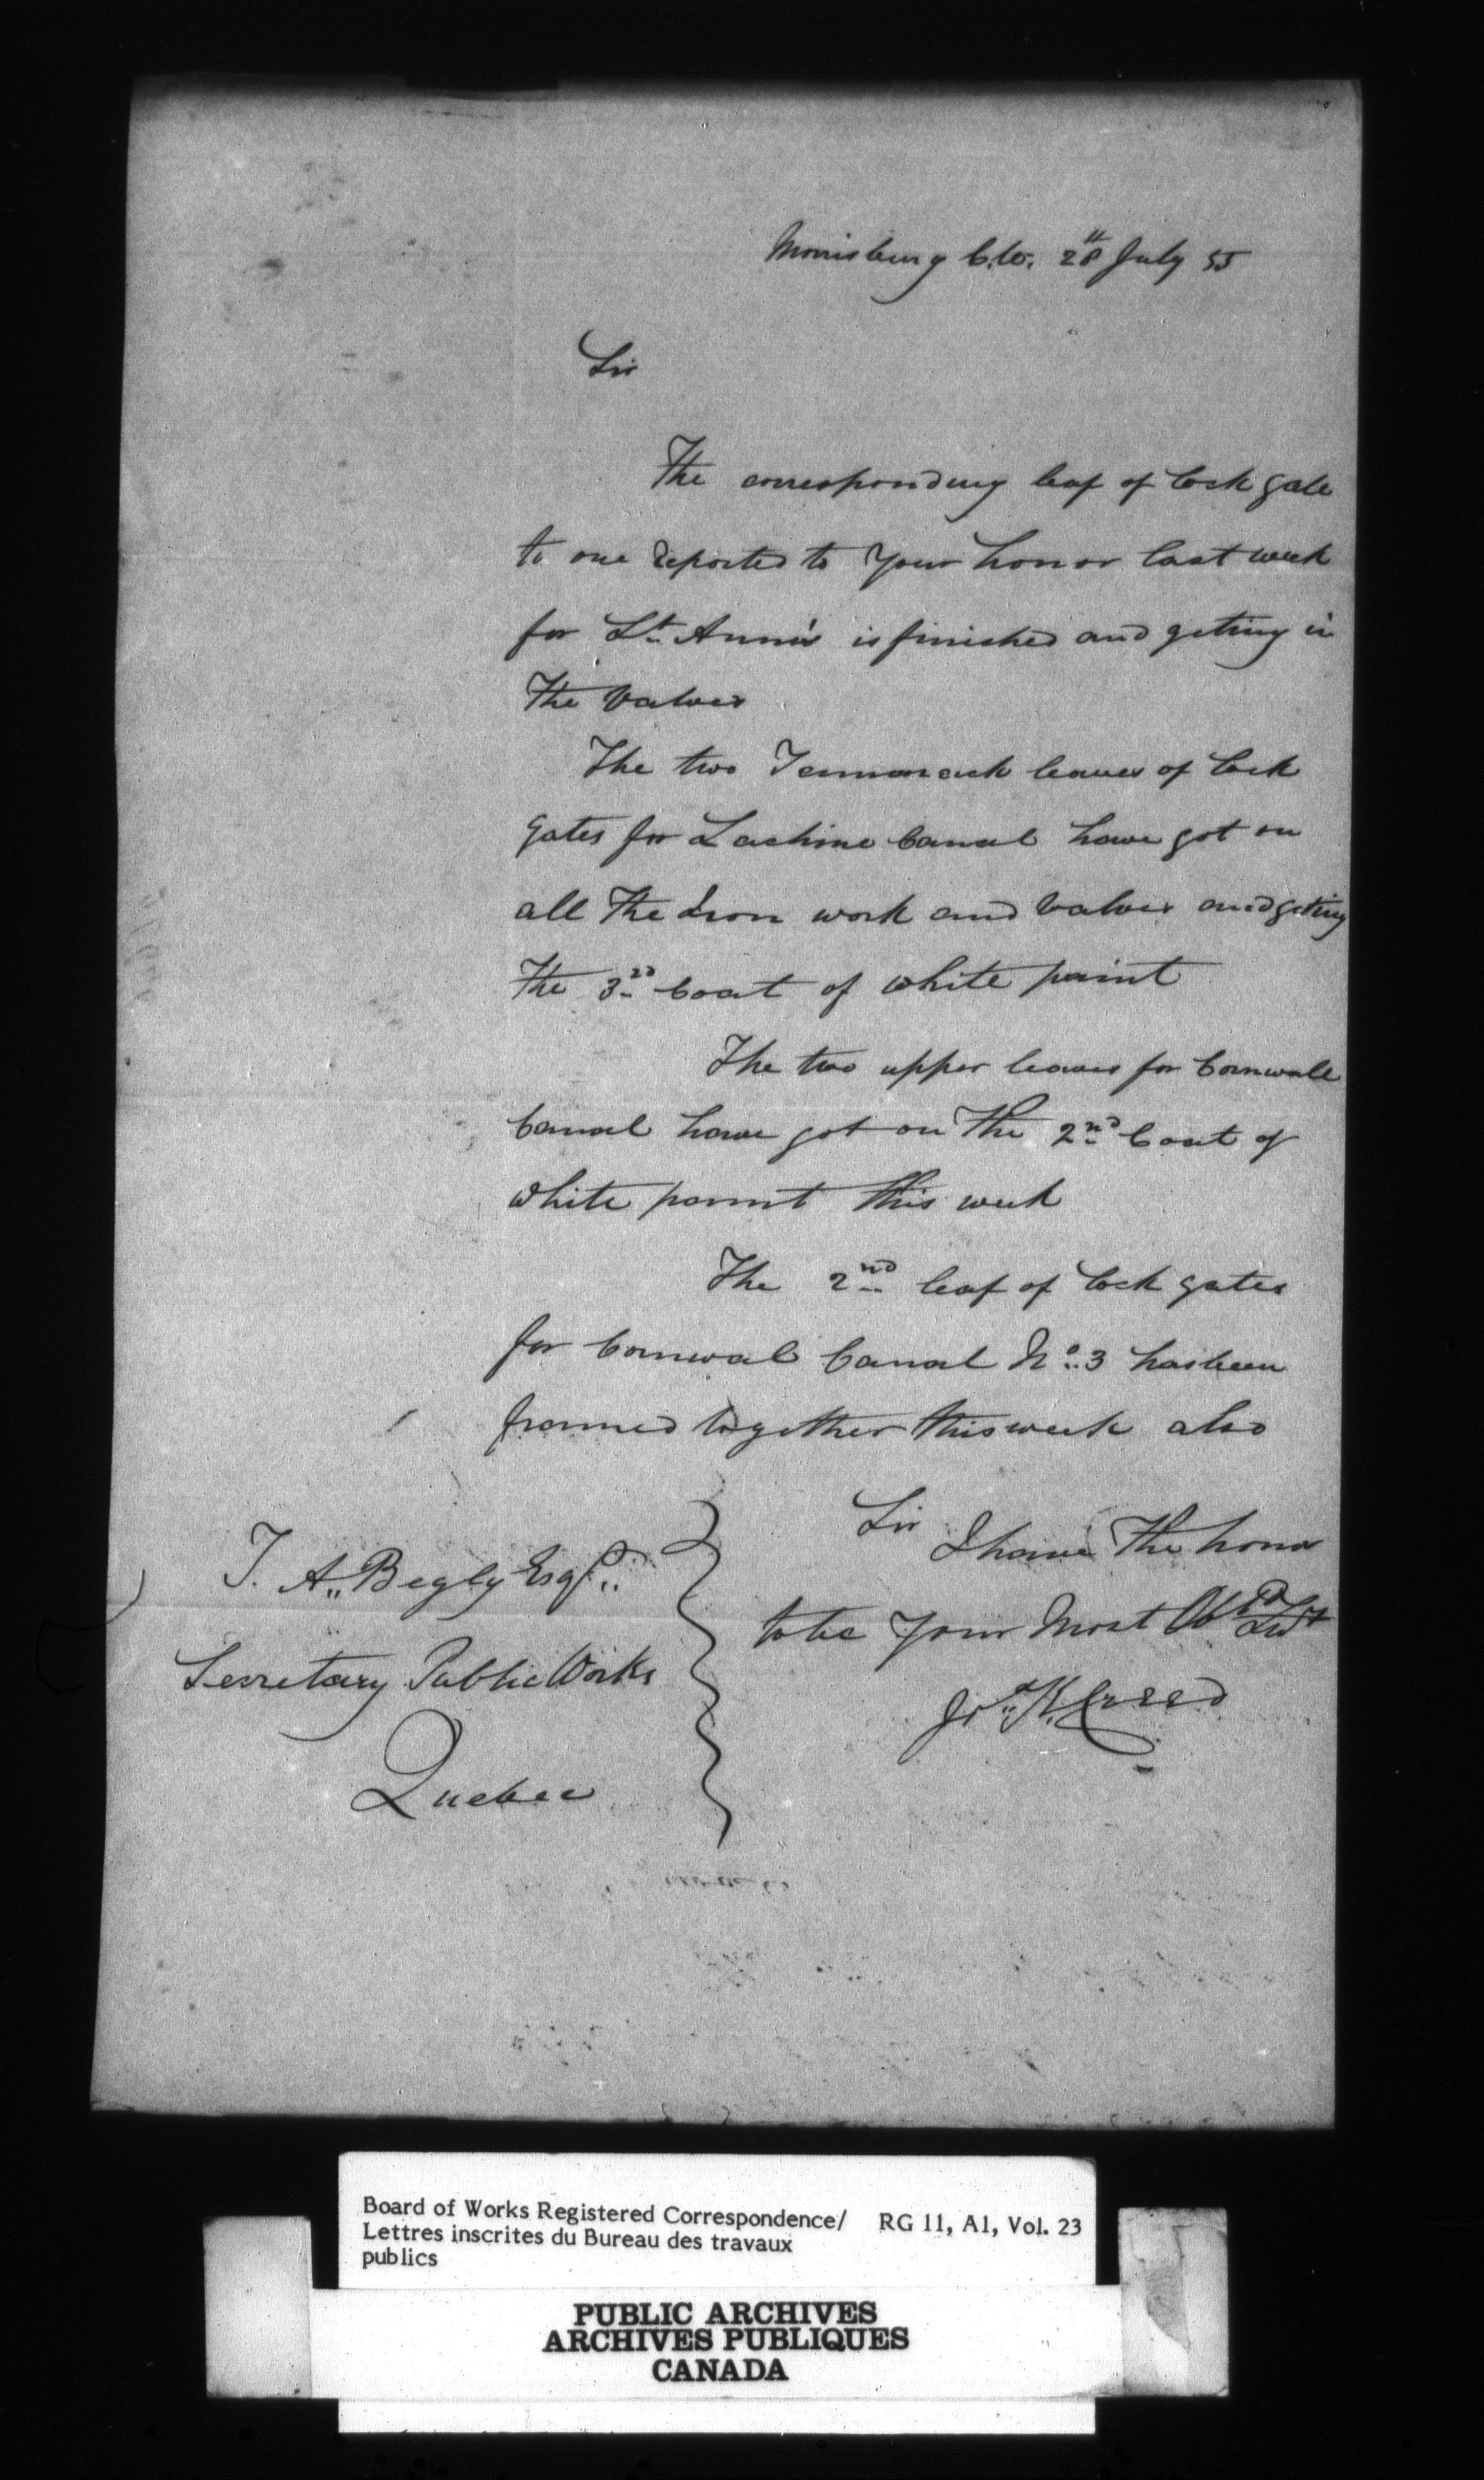 Morrisburg C.W. 28th July 55
Sir
The corresponding leaf of lock gate
to one Reported to Your honor last week
for St. Ann's is finished and geting in
The Valves
The two Tammarack leaves of lock
gates for Lachine Canal have got on
all The Iron work and Valves and geting
The 3rd Coat of White paint
The two upper leaves for Cornwall
Canal have got on The 2nd Coat of
White paint This week
The 2nd leaf of lock gates
for Cornwal Canal No. 3 has been
framed together this week also
Sir
I have The honor
to be Your Most Obdt Svt
T. A. Begly Esqr.
Secretary Public Works
Quebec
Board of Works Registered Correspondence/ RG 11, A1, Vol. 23
Lettres inscrites du Bureau des travaux
publics
PUBLIC ARCHIVES
ARCHIVES PUBLIQUES
CANADA